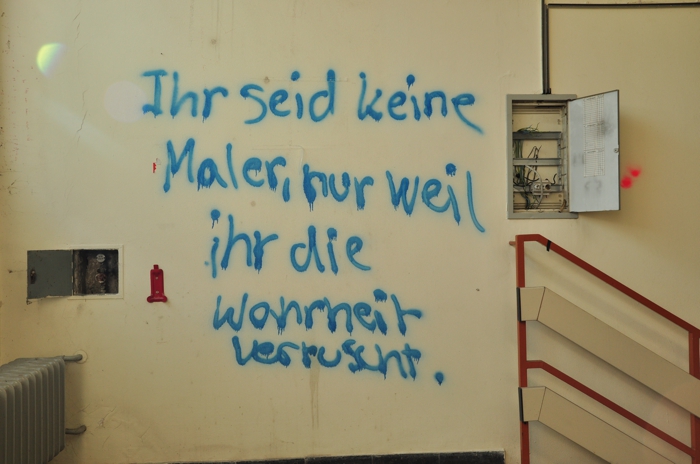 Ihr seid keine
Maler, nur weil
ihr die
Wahrheit
verruscht.